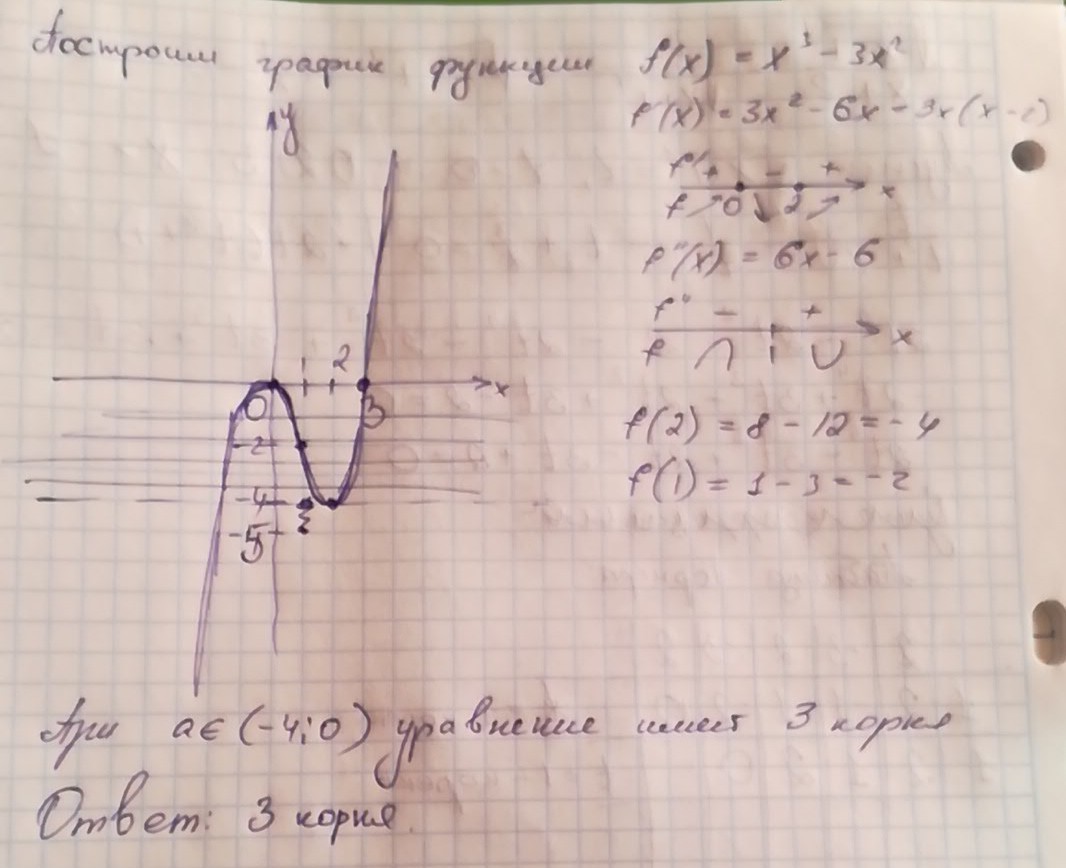 Построим график функции f(x) = x³ - 3x²
f'(x) = 3x² - 6x = 3x(x-2)
y
f' + - + x
f ↗ 0 ↘ 2 ↗
f''(x) = 6x - 6
f'' - + x
f ∩ 1 ∪
1 2
x
0 3
f(2) = 8 - 12 = -4
-2
f(1) = 1 - 3 = -2
-4
-5
При a ∈ (-4; 0) уравнение имеет 3 корня
Ответ: 3 корня.